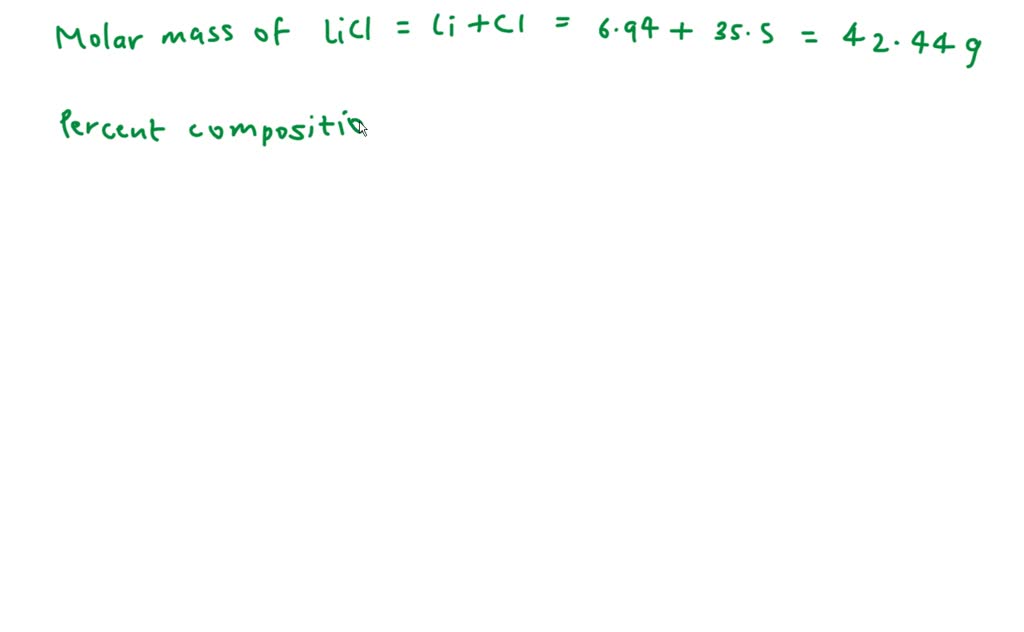 Molar mass of LiCl = Li + Cl = 6.94 + 35.5 = 42.44 g
Percent compositio